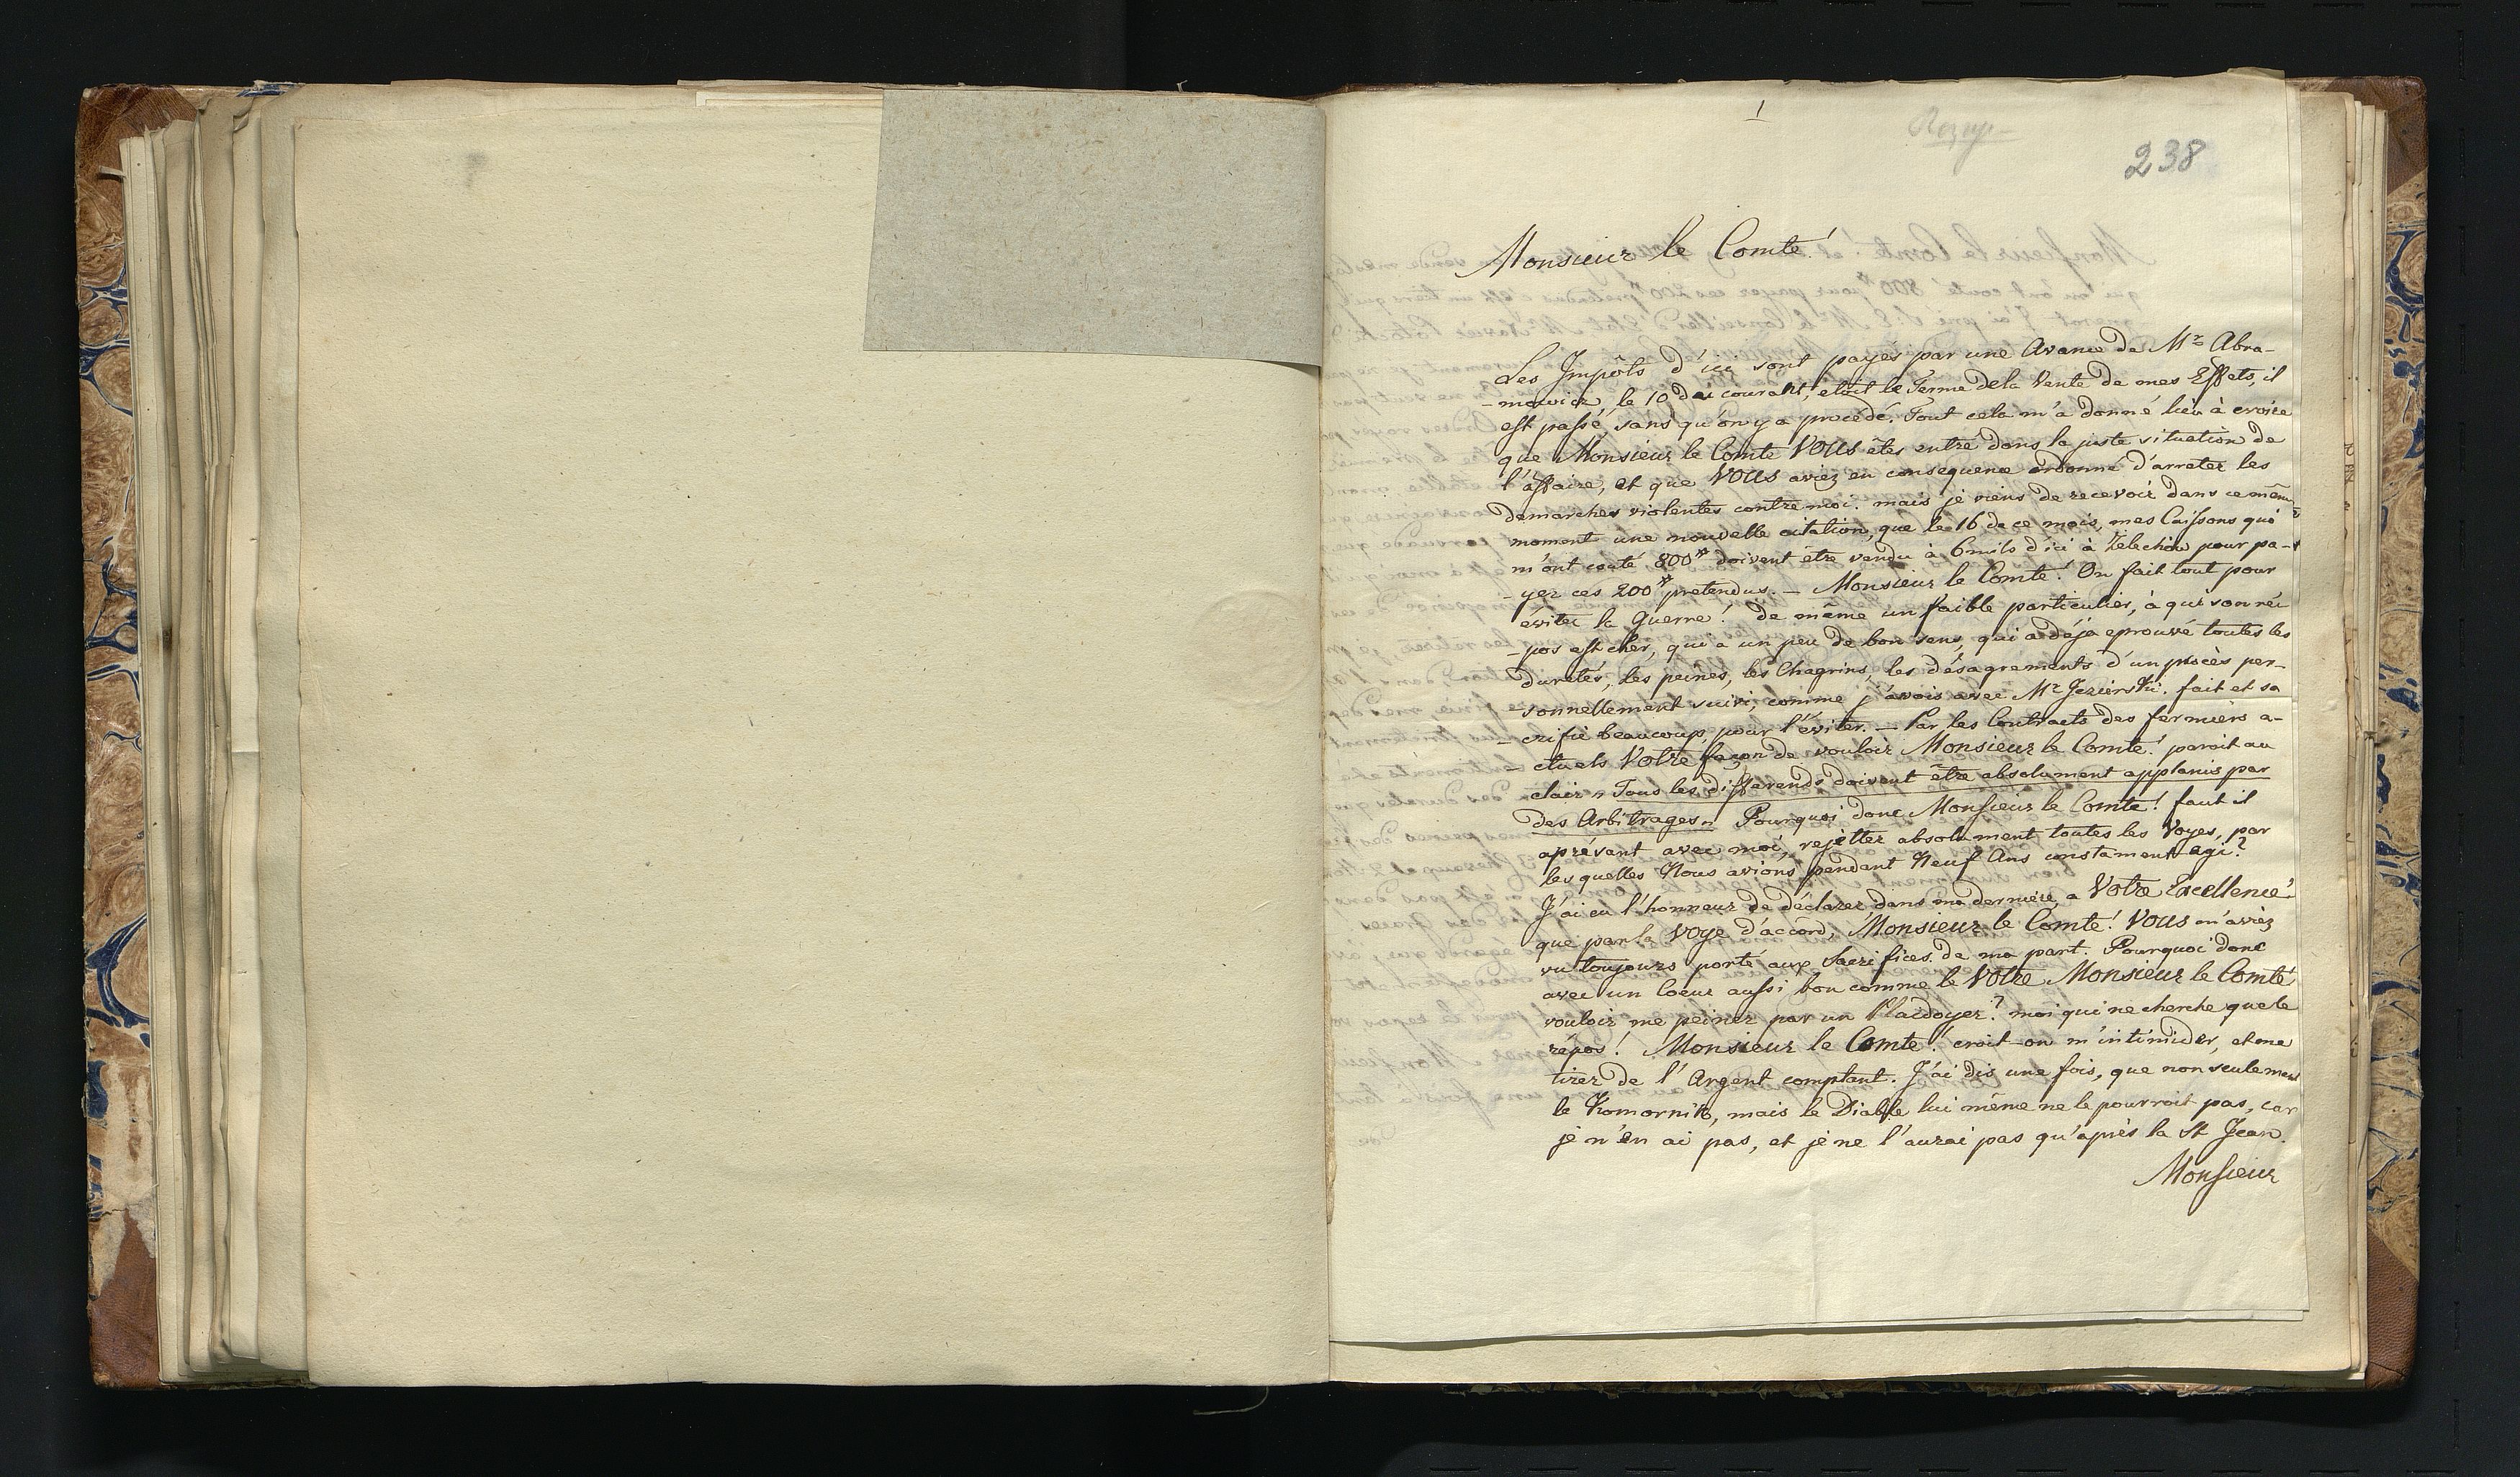 1
238
Monsieur le Comte!
Les Impôts d'ici sont payés par une Avance de Mr Abra-
-mowicz, le 10 du courant, etoit le Terme dela Vente de mes Effets, il
est passé, sans qu'on y a procédé. Tout cela m'a donné lieu à croire
que Monsieur le Comte VOUS êtes entre dans la juste situation de
l'affaire, et que VOUS aviez en consequence ordonné d'arreter les
demarches violentes contre moi. mais je viens de recevoir dans ce même
moment une nouvelle citation, que le 16 de ce mois, mes Caissons qui
m'ont couté 800# doivent être vendu à 6 mils d'ici à Zelechow pour pa-
-yer ces 200# pretendus. — Monsieur le Comte! On fait tout pour
éviter la Guerre! de même un faible particulier, à qui son ré-
-pos est cher, qui a un peu de bon sens, qui a déja eprouvé toutes les
duretés, les peines, les Chagrins, les désagrements d'un procès per-
-sonnellement suivi, comme j'avois avec Mr Jezierski. fait et sa
-crifié beaucoup, pour l'éviter. — Par les Contracts des fermiers a-
-ctuels Votre façon de vouloir Monsieur le Comte! paroit au
clair „ Tous les differends doivent être absolument applanis par
des Arbitrages „ Pourquoi donc Monsieur le Comte! faut il
aprésant avec moi, rejetter absolument toutes les Voyes, par
les quelles Nous avions pendant Neuf Ans constament agi?
J'ai eu l'honneur de déclarer dans ma derniére, a Votre Excellence!
que par la Voye d'accord, Monsieur le Comte! VOUS m'aviez
vu toujours porté aux Sacrifices de ma part. Pourquoi donc
avec un Coeur aussi bon comme le Votre Monsieur le Comte!
vouloir me peiner par un Plaidoyer? moi qui ne cherche que le
répos! Monsieur le Comte! croit-on m'intimider, et me
tirer de l'Argent comptant. J'ai dis une fois, que non seulement
le Komornik, mais le Diable lui même ne le pourroit pas, car
je n'en ai pas, et je ne l'aurai pas qu'après la St Jean.
Monsieur